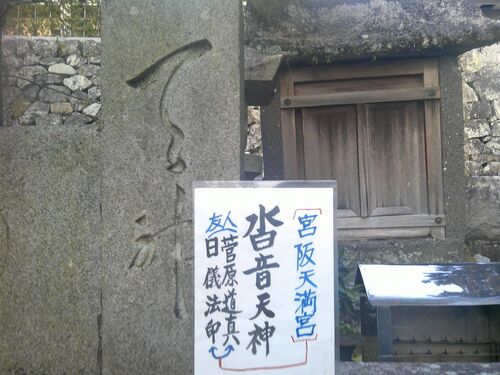 宮阪天満宮
沓音天神
友人
菅原道真
日儀法印